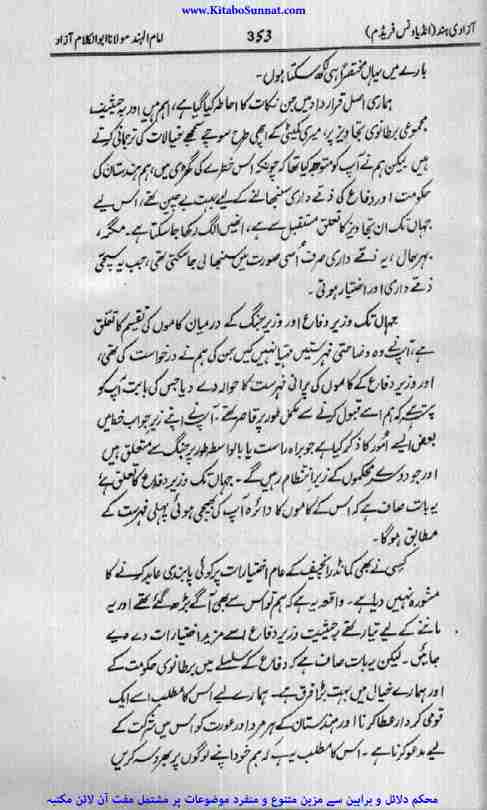 www.KitaboSunnat.com
آزادی ہند (انڈیا ونس فریڈم)
353
امام الہند مولانا ابوالکلام آزاد
بارے میں یہاں مختصراً ہی لکھ سکتا ہوں۔
ہماری اصل قرارداد میں جن نکات کا احاطہ کیا گیا ہے، اہم ہیں اور بہ حیثیت
مجموعی برطانوی تجاویز پر، میری کمیٹی کے اچھی طرح سوچے سمجھے خیالات کی ترجمانی کرتے
ہیں لیکن ہم نے آپ کو متوجہ کیا تھا کہ چونکہ اس خطرے کی گھڑی میں، ہم ہندستان کی
حکومت اور دفاع کی ذمے داری سنبھالنے کے لیے بہت بے چین تھے، اس لیے
جہاں تک ان تجاویز کا تعلق مستقبل سے ہے، انھیں الگ رکھا جا سکتا ہے۔ مگر،
بہرحال، یہ ذمے داری صرف اُسی صورت میں سنبھالی جا سکتی تھی، جب یہ سچی
ذمے داری اور اختیار ہوتی۔
جہاں تک وزیر دفاع اور وزیر جنگ کے درمیان کاموں کی تقسیم کا تعلق
ہے، آپ نے وہ وضاحتی فہرستیں مہیا نہیں کیں جن کی ہم نے درخواست کی تھی،
اور وزیر دفاع کے کاموں کی پرانی فہرست کا حوالہ دے دیا جس کی بابت آپ کو
پتہ ہے کہ ہم اسے قبول کرنے سے مکمل طور پر قاصر تھے۔ آپ نے اپنے زیر جواب خط میں
بعض ایسے امور کا ذکر کیا ہے جو براہ راست یا بالواسطہ طور پر جنگ سے متعلق ہیں
اور جو دوسرے محکموں کے زیر انتظام رہیں گے۔ جہاں تک وزیر دفاع کا تعلق ہے
یہ بات صاف ہے کہ اس کے کاموں کا دائرہ آپ کی بھیجی ہوئی پہلی فہرست کے
مطابق ہوگا۔
کسی نے بھی کمانڈر انچیف کے عام اختیارات پر کوئی پابندی عاید کرنے کا
مشورہ نہیں دیا ہے۔ واقعہ یہ ہے کہ ہم تو اس سے بھی آگے بڑھ گئے تھے اور یہ
ماننے کے لیے تیار تھے کہ بحیثیت وزیر دفاع اسے مزید اختیارات دے دیے
جائیں۔ لیکن یہ بات صاف ہے کہ دفاع کے سلسلے میں برطانوی حکومت کے
اور ہمارے خیال میں بہت بڑا فرق ہے۔ ہمارے لیے اس کا مطلب اسے ایک
قومی کردار عطا کرنا اور ہندستان کے ہر مرد اور عورت کو اس میں شرکت کے
لیے مدعو کرنا ہے۔ اس کا مطلب یہ ہے کہ ہم خود اپنے لوگوں پر بھروسہ کریں
محکم دلائل و براہین سے مزین متنوع و منفرد موضوعات پر مشتمل مفت آن لائن مکتبہ